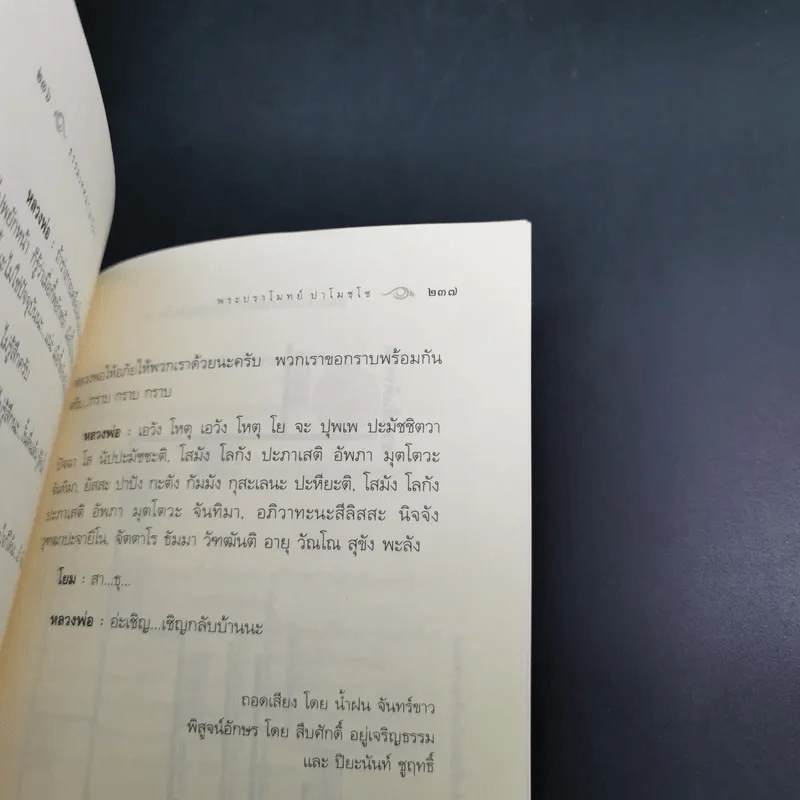 ๒๓๖
หลวงพ่อ :
พระปราโมทย์ ปาโมชฺโช ๒๓๗
หลวงพ่อให้อภัยให้พวกเราด้วยนะครับ พวกเราขอกราบพร้อมกัน
ครับ...กราบ กราบ กราบ
หลวงพ่อ : เอวัง โหตุ เอวัง โหตุ โย จะ ปุพเพ ปะมัชชิตวา
ปัจฉา โส นัปปะมัชชะติ, โสมัง โลกัง ปะภาเสติ อัพภา มุตโตวะ
จันทิมา, ยัสสะ ปาปัง กะตัง กัมมัง กุสะเลนะ ปะหียะติ, โสมัง โลกัง
ปะภาเสติ อัพภา มุตโตวะ จันทิมา, อภิวาทะนะสีลิสสะ นิจจัง
วุฑฒาปะจายิโน, จัตตาโร ธัมมา วัฑฒันติ อายุ วัณโณ สุขัง พะลัง
โยม : สา...ธุ...
หลวงพ่อ : อ่ะเชิญ...เชิญกลับบ้านนะ
ถอดเสียง โดย น้ำฝน จันทร์ขาว
พิสูจน์อักษร โดย สืบศักดิ์ อยู่เจริญธรรม
และ ปิยะนันท์ ชูฤทธิ์